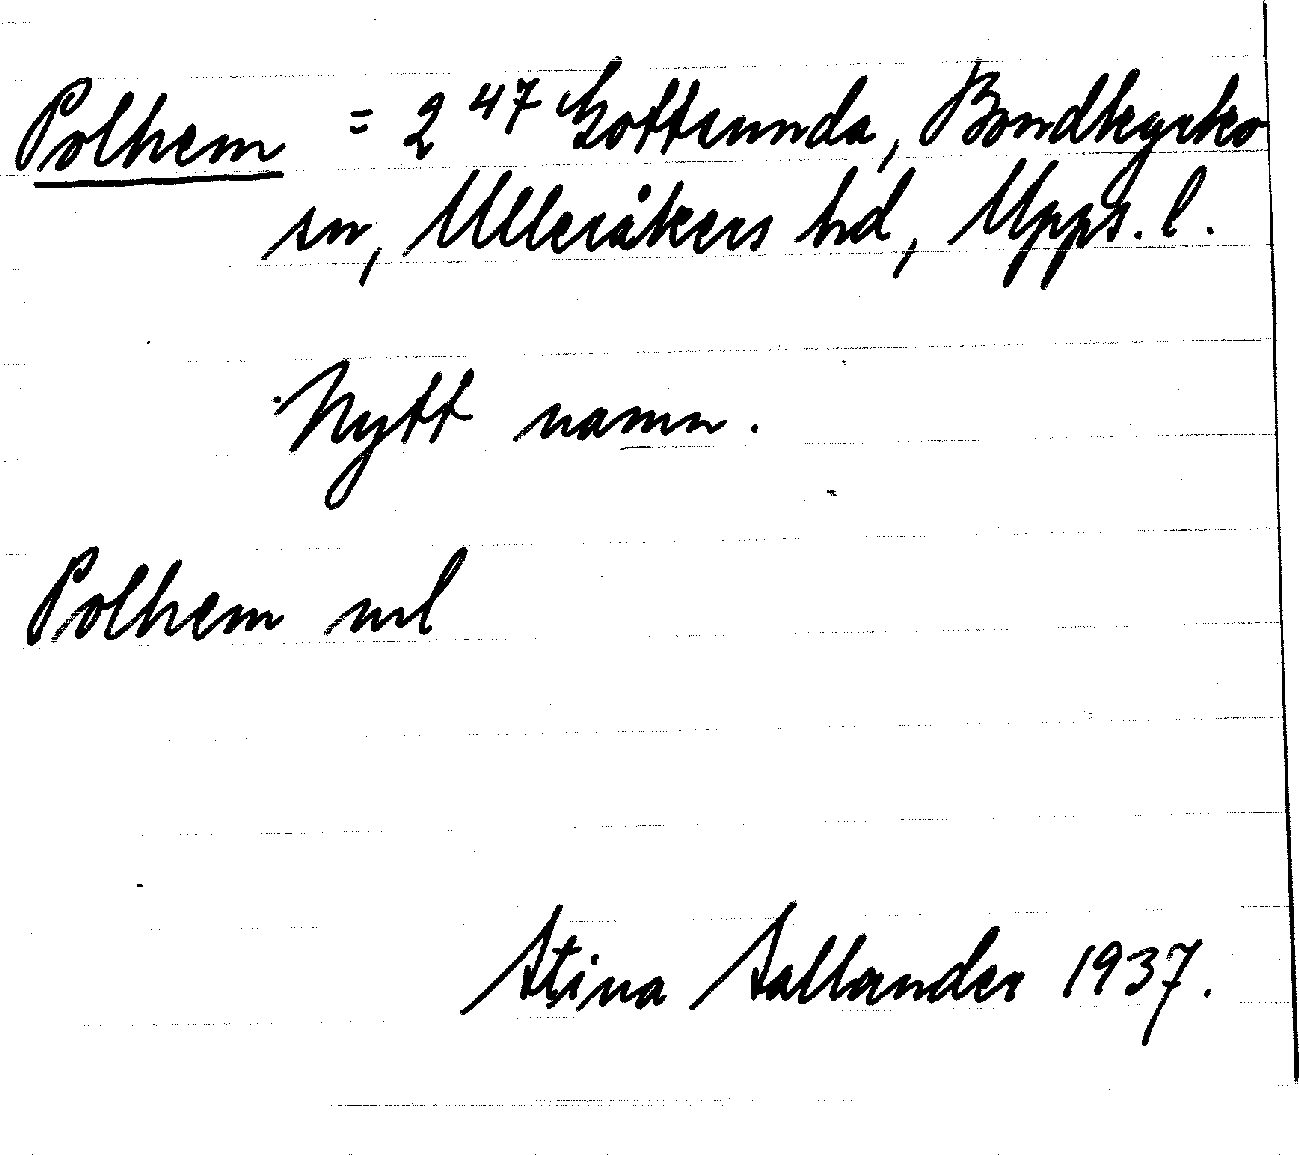 Polhem = 2⁴⁷ Gottsunda, Bondkyrko
sn, Ulleråkers hd, Upps. l.
Nytt namn.
Polhem url
Stina Sallander 1937.